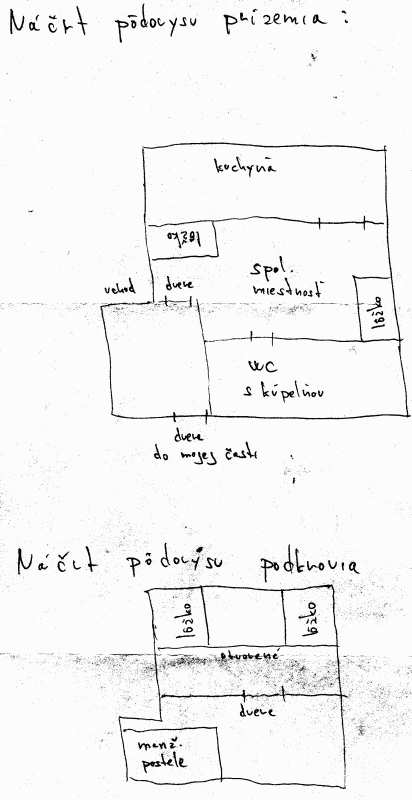 Náčrt pôdorysu prízemia :
kuchyňa
lôžko
spol.
miestnosť
vchod
dvere
lôžko
WC
s kúpeľňou
dvere
do mojej časti
Náčrt pôdorysu podkrovia
lôžko
lôžko
otvorené
dvere
manž.
postele